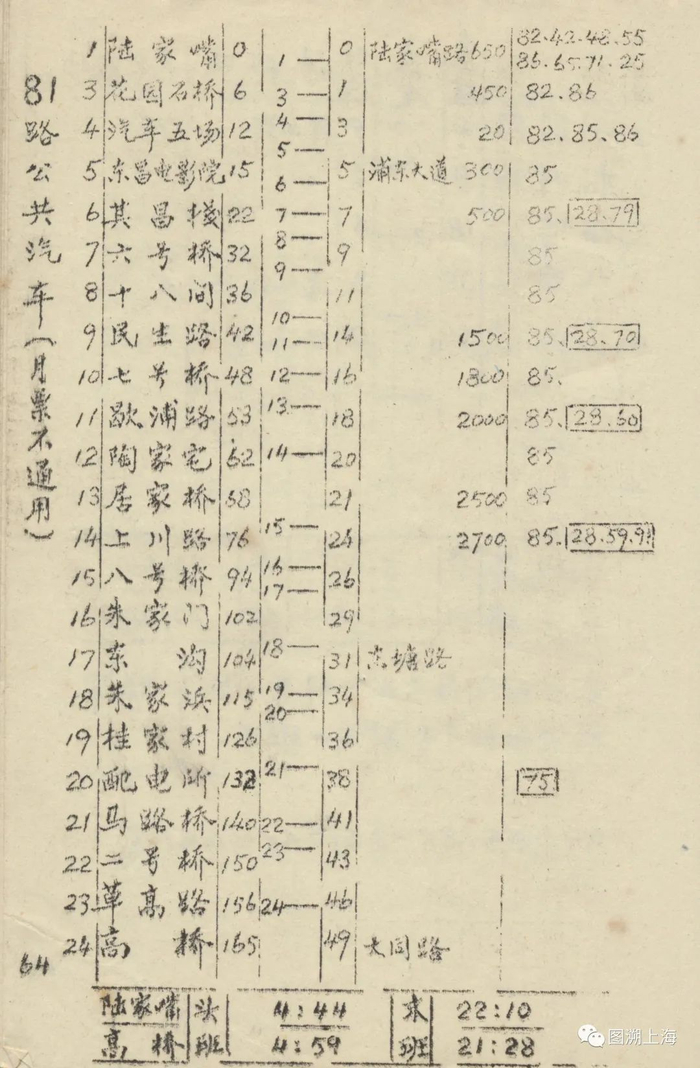 81路公共汽车(月票不通用)
1 陆家嘴 0 1 0 陆家嘴路 650 82.42.48.55
86.65.71.25
3 花园石桥 6 3 1 450 82.86
4 汽车五场 12 4 3 20 82.85.86
5 东昌电影院 15 5 5 浦东大道 300 85
6 其昌栈 22 6 7 7 500 85. 28.79
7 六号桥 32 8 9 9 85
8 十八间 36 11 85
9 民生路 42 10 11 14 1500 85. 28.70
10 七号桥 48 12 16 1800 85.
11 歇浦路 53 13 18 2000 85. 28.60
12 陶家宅 62 14 20 85
13 居家桥 68 21 2500 85
14 上川路 76 15 24 2700 85. 28.59.91
15 八号桥 94 16 17 26
16 朱家门 102 29
17 东沟 104 18 31 东塘路
18 朱家浜 115 19 20 34
19 桂家村 126 36
20 配电所 132 21 38 75
21 马路桥 140 22 41
22 二号桥 150 23 43
23 草高路 156 24 46
24 高桥 165 49 大同路
64
陆家嘴 头 4:44 末 22:10
高桥 班 4:59 班 21:28
图溯上海